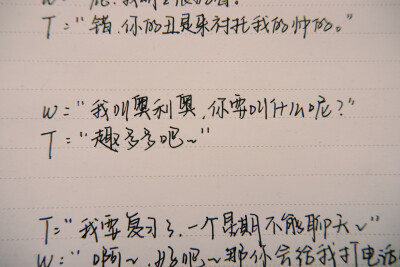 T="错，你的丑是来衬托我的帅的。"
W="我叫奥利奥，你要叫什么呢？"
T="趣多多吧~"
T="我要复习了，一个星期不能聊天~"
W="啊~，好吧~那你会给我打电话